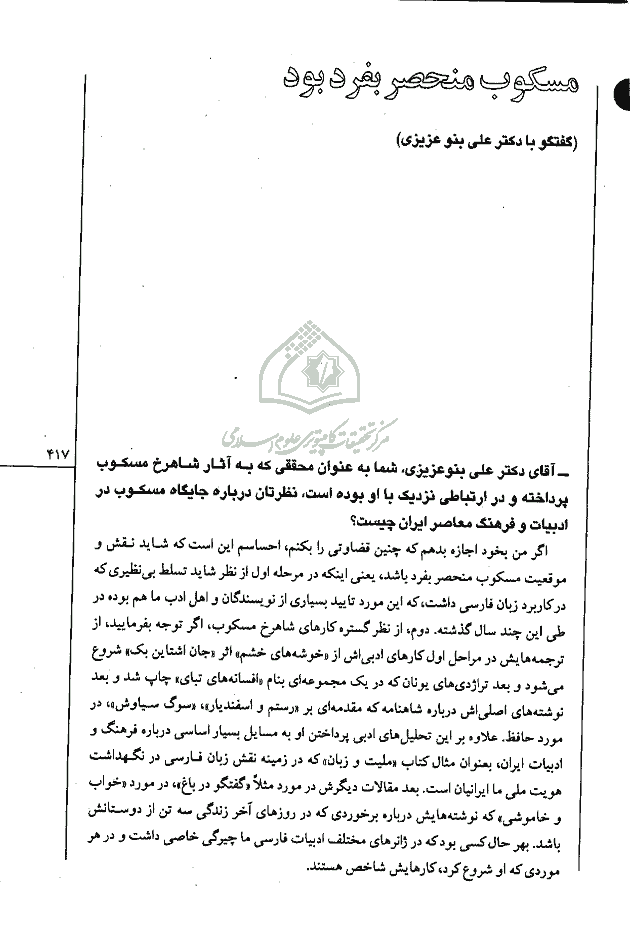 مسکوب منحصر بفرد بود
(گفتگو با دکتر علی بنو عزیزی)
مرکز تحقیقات کامپیوتری علوم اسلامی
۴۱۷
ــ آقای دکتر علی بنوعزیزی، شما به عنوان محققی که به آثار شاهرخ مسکوب
پرداخته و در ارتباطی نزدیک با او بوده است، نظرتان درباره جایگاه مسکوب در
ادبیات و فرهنگ معاصر ایران چیست؟
اگر من بخود اجازه بدهم که چنین قضاوتی را بکنم، احساسم این است که شاید نقش و
موقعیت مسکوب منحصر بفرد باشد، یعنی اینکه در مرحله اول از نظر شاید تسلط بی‌نظیری که
در کاربرد زبان فارسی داشت، که این مورد تایید بسیاری از نویسندگان و اهل ادب ما هم بوده در
طی این چند سال گذشته. دوم، از نظر گستره کارهای شاهرخ مسکوب، اگر توجه بفرمایید، از
ترجمه‌هایش در مراحل اول کارهای ادبی‌اش از «خوشه‌های خشم» اثر «جان اشتاین بک» شروع
می‌شود و بعد تراژدی‌های یونان که در یک مجموعه‌ای بنام «افسانه‌های تبای» چاپ شد و بعد
نوشته‌های اصلی‌اش درباره شاهنامه که مقدمه‌ای بر «رستم و اسفندیار»، «سوگ سیاوش»، در
مورد حافظ. علاوه بر این تحلیل‌های ادبی پرداختن او به مسایل بسیار اساسی درباره فرهنگ و
ادبیات ایران، بعنوان مثال کتاب «ملیت و زبان» که در زمینه نقش زبان فارسی در نگهداشت
هویت ملی ما ایرانیان است. بعد مقالات دیگرش در مورد مثلاً «گفتگو در باغ»، در مورد «خواب
و خاموشی» که نوشته‌هایش درباره برخوردی که در روزهای آخر زندگی سه تن از دوستانش
باشد. بهر حال کسی بود که در ژانرهای مختلف ادبیات فارسی ما چیرگی خاصی داشت و در هر
موردی که او شروع کرد، کارهایش شاخص هستند.